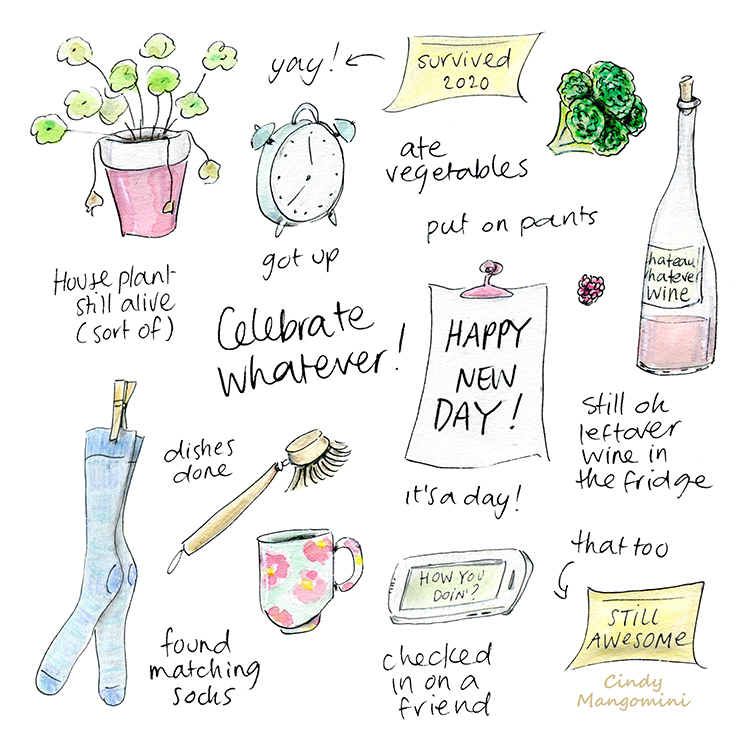 yay!
survived
2020
ate
vegetables
put on pants
got up
House plant
still alive
(sort of)
Celebrate
whatever!
HAPPY
NEW
DAY!
hateau
hatever
WINE
still ok
leftover
wine in
the fridge
dishes
done
it's a day!
that too
HOW YOU
DOIN'?
STILL
AWESOME
found
matching
socks
checked
in on a
friend
Cindy
Mangomini